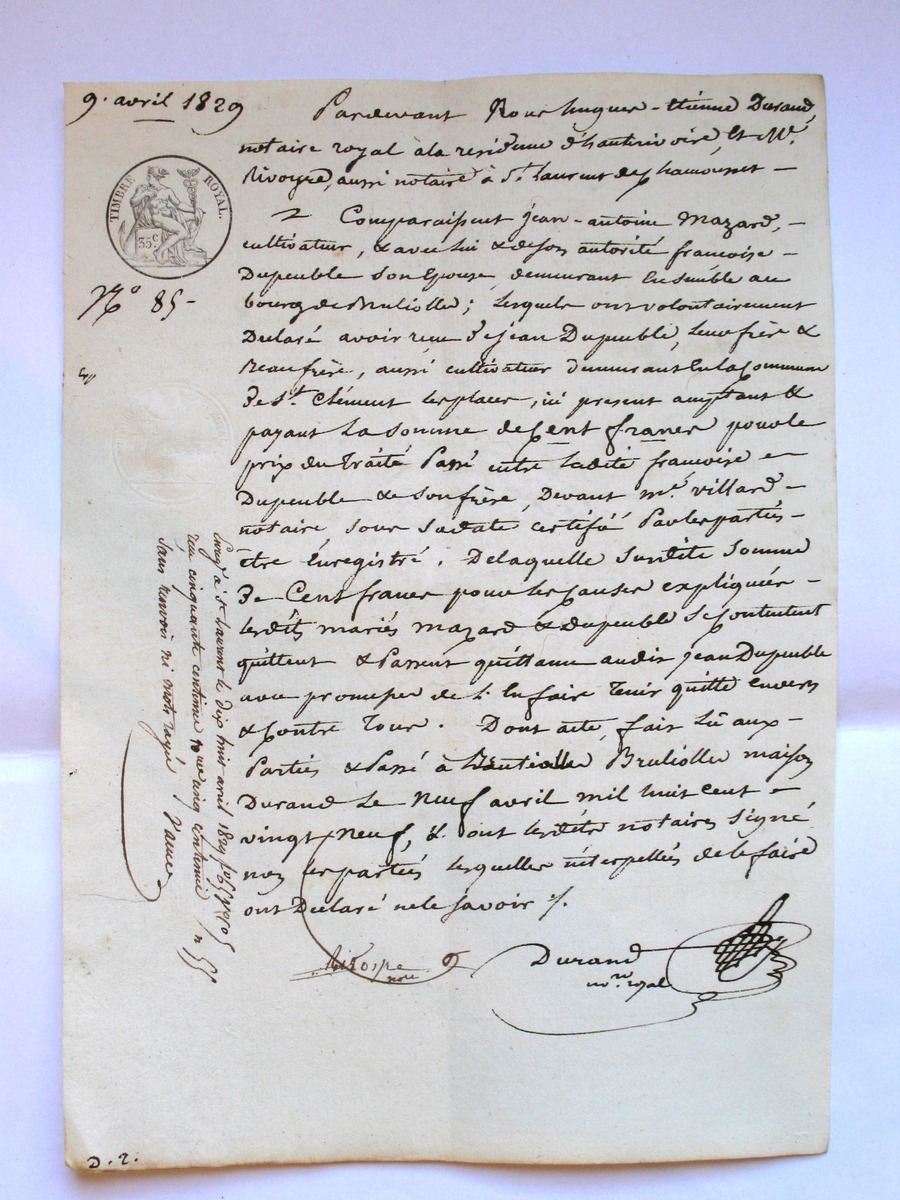 9. avril 1829
Pardevant Nous hugues-étienne Durand,
notaire royal à la residence d'hauterivoire, Et Mr.
Rivoyre, aussi notaire à St. Laurent de Chamousset -
TIMBRE ROYAL.
35 c.
Comparaissent jean-antoine Mazard, -
cultivateur, & avec lui & de son autorité francoise -
Dupeuble son Epouse, demeurant Ensemble au
bourg de Bruliolle; lesquels ont volontairement
No 85 -
Declaré avoir reçu de jean Dupeuble, leur frère &
Beaufrère, aussi cultivateur demeurant En la Commune
de St. Clément les places, ici present acceptant &
payant La somme de Cent francs pour le
prix du Traité Passé entre ladite francoise -
Dupeuble & son frère, Devant me. Villard -
notaire sous sa date certifié Par les parties -
être Enregistré. De laquelle susdite somme
de Cent francs pour les causes expliquées -
lesdits mariés mazard & dupeuble se contentent
quittent & Passent quittance audit jean Dupeuble
avec promesse de l'En faire Tenir quitte envers
& Contre Tous. Dont acte, fait Lû aux -
Parties & Passé à Bruliolle maison
Durand Le Neuf avril mil huit cent -
vingt Neuf, & ont lesdits notaires signé
non les parties lesquelles interpellés de le faire
ont Declaré ne le savoir ./.
Durand
nore. royal
Enrgé à St Laurent le dix huit avril 1829
reçu cinquante centimes cinq centimes
sans renvoi ni mots rayés
D. 2.